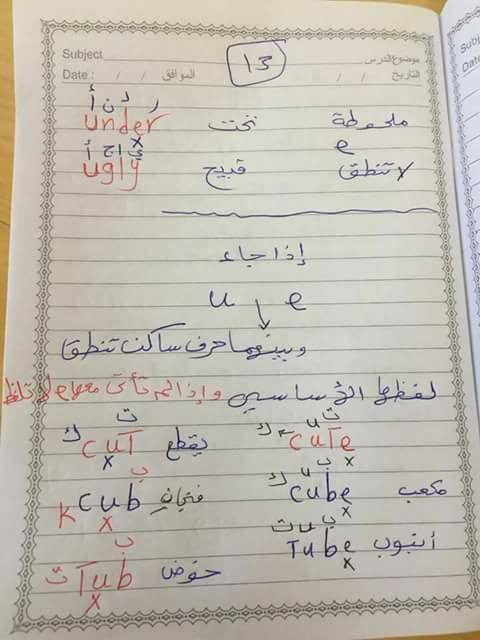 ١٣
موضوع الدرس Subject
التاريخ / / الموافق / / Date :
ر د ن أ
ملحوظة تحت under
e
لا تنطق قبيح ugly
إذا جاء
u e
وبينهما حرف ساكن تنطق
لفظها الأساسي وإذا لم تأتي معها
ت ت
cute يقطع cut ك
x x
ب
مكعب cube cub k
x x
انبوب Tube حوض Tub ت
x x